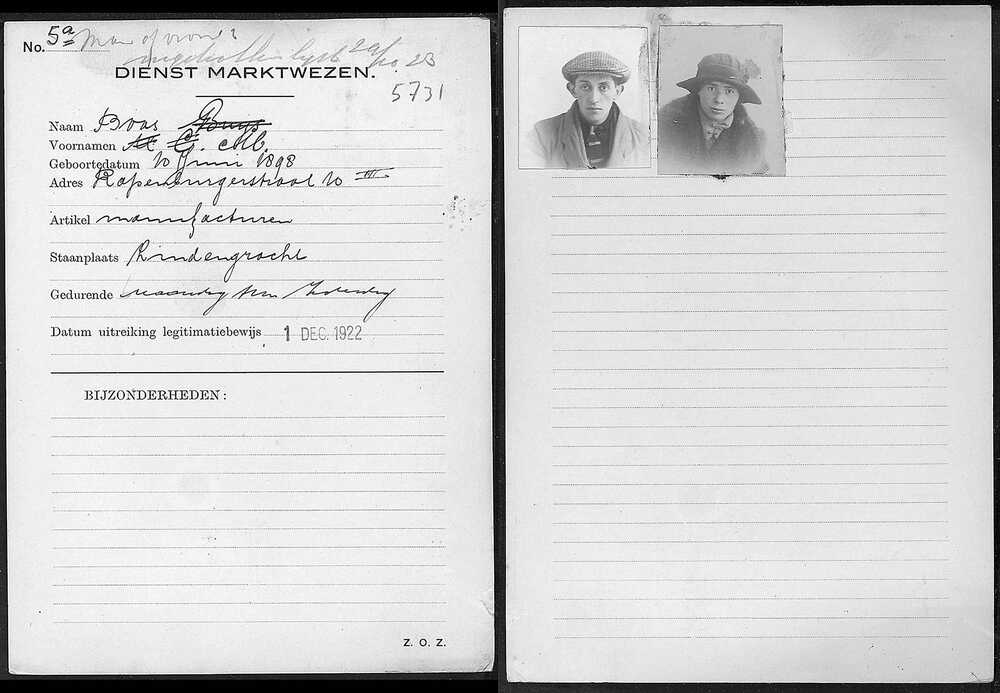 No. 5a Man of vrouw
29/10 23
DIENST MARKTWEZEN.
5731
Naam Boas Buys
Voornamen M G. M.
Geboortedatum 10 Juni 1898
Adres Rapenburgerstraat 10 III
Artikel manufacturen
Staanplaats Lindengracht
Gedurende maandag t/m Zaterdag
Datum uitreiking legitimatiebewijs 1 DEC. 1922
BIJZONDERHEDEN:
Z. O. Z.